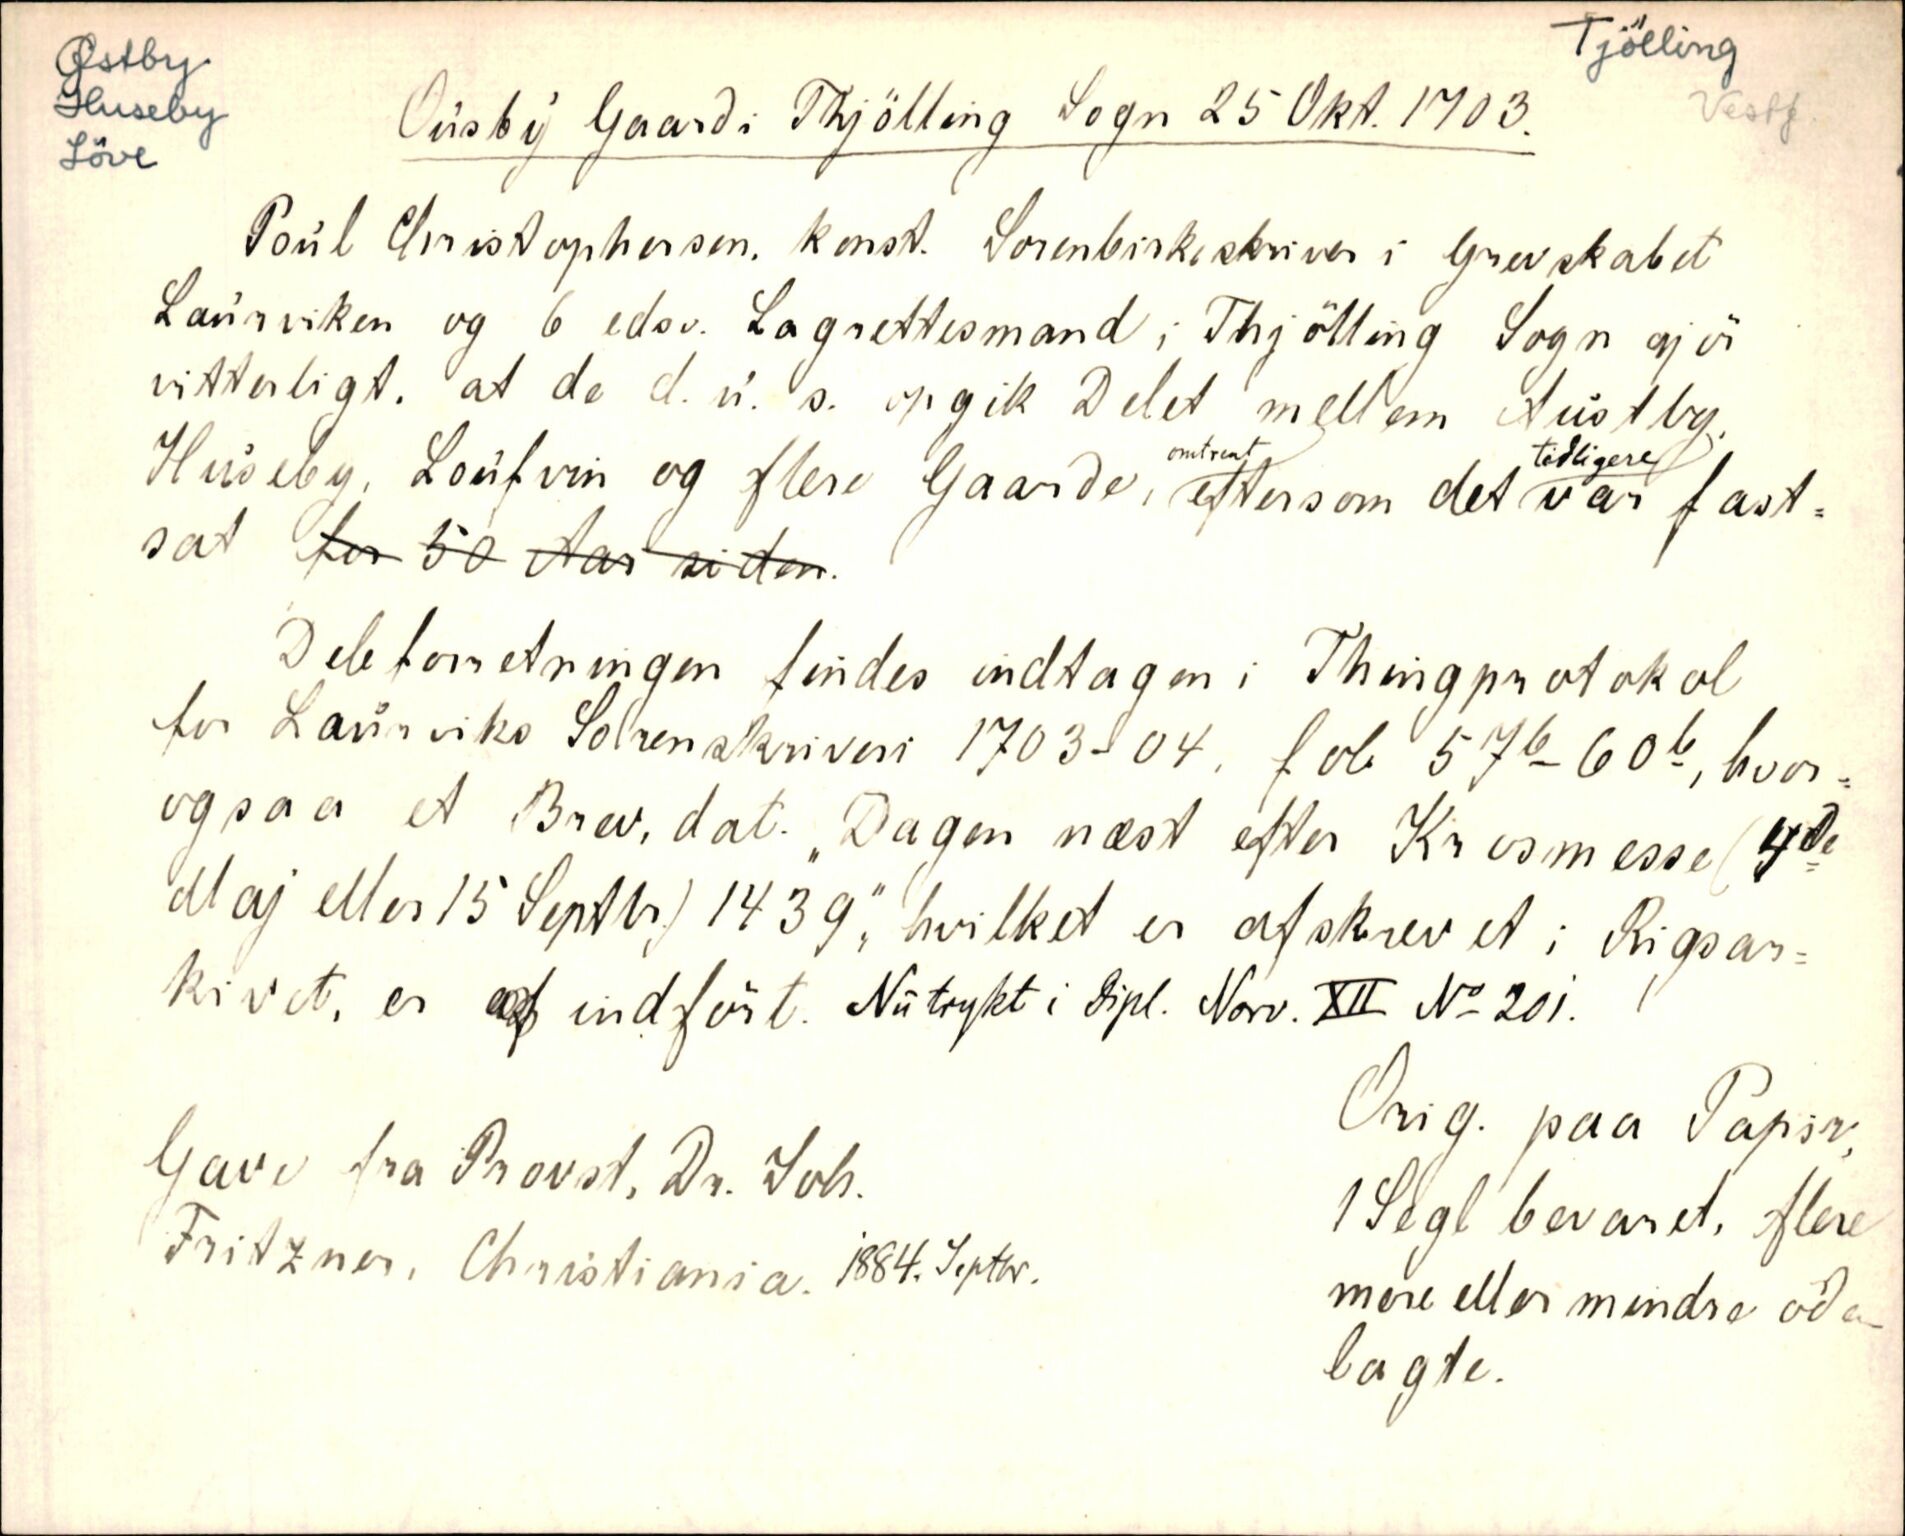 Østby
Huseby
Löve
Tjölling
Vestf.
Oúsbÿ Gaard i Thjölling Sogn 25 Okt. 1703.
Poúl Christophersen, konst. Sorenbirkeskriver i Grevskabet
Laúrviken og 6 edsv. Lagrettesmænd i Thjölling Sogn gjör
vitterligt, at de d. ú. s. opgik Delet mellem Aústby,
Húseby, Loúfvin og flere Gaarde, omtrent eftersom det tidligere var fast-
sat for 50 Aar siden.
Deleforretningen findes indtagen i Thingprotokol
for Laúrviks Sorenskriveri 1703-04, fol. 57b-60b, hvor-
ogsaa et Brev, dat. „Dagen næst efter Krosmesse (4de
Maj eller 15 Septbr) 1439", hvilket er afskrevet i Rigsar-
kivet, er indfört. Nú trykt i Dipl. Norv. XII No 201.
Orig. paa Papir,
1 Segl bevaret, flere
mere eller mindre öde-
lagte.
Gave fra Provst, Dr. Joh.
Fritzner, Christiania. 1884. Septbr.